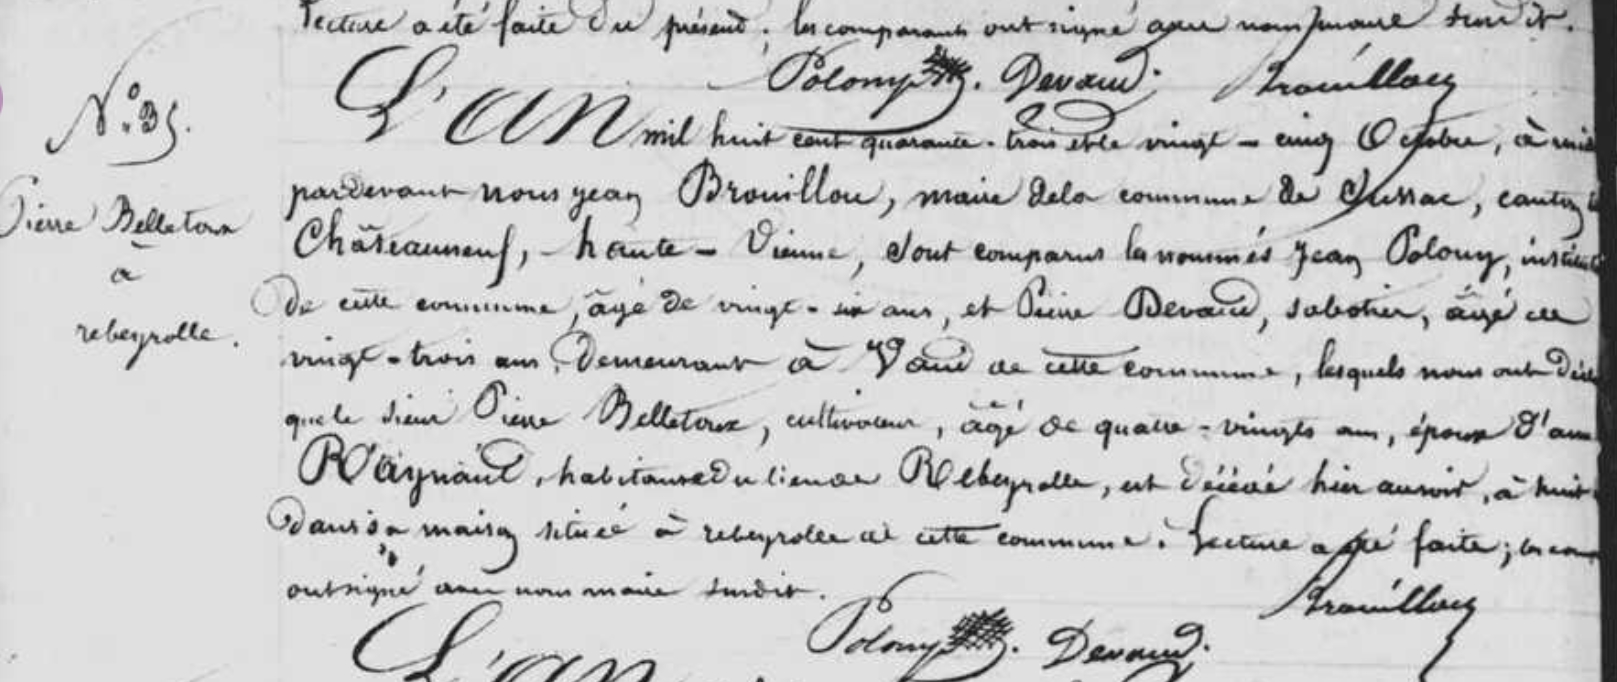 Lecture a été faite du présent ; les comparants ont signé avec nous maire susdit.
Polony. Devaud. Brouillou
N° 35.
L'AN mil huit cent quarante-trois et le vingt-cinq Octobre, à midi
Pierre Belletoux
pardevant nous jean Brouillou, maire dela commune de Sussac, canton
à
Châteauneuf, - haute - Vienne, sont comparus les nommés jean Polony, institut
rebeyrolle.
de cette commune, âgé de vingt-six ans, et Pierre Devaud, sabotier, âgé de
vingt-trois ans, demeurant à Vaud de cette commune, lesquels nous ont décl
que le sieur Pierre Belletoux, cultivateur, âgé de quatre-vingts ans, époux d'anne
Raynaud, habitans du lieu de Rebeyrolle, est décédé hier au soir, à huit
dans sa maison située à rebeyrolle de cette commune. Lecture a été faite ; les com
ont signé avec nous maire susdit.
Brouillou
Polony. Devaud.
L'AN